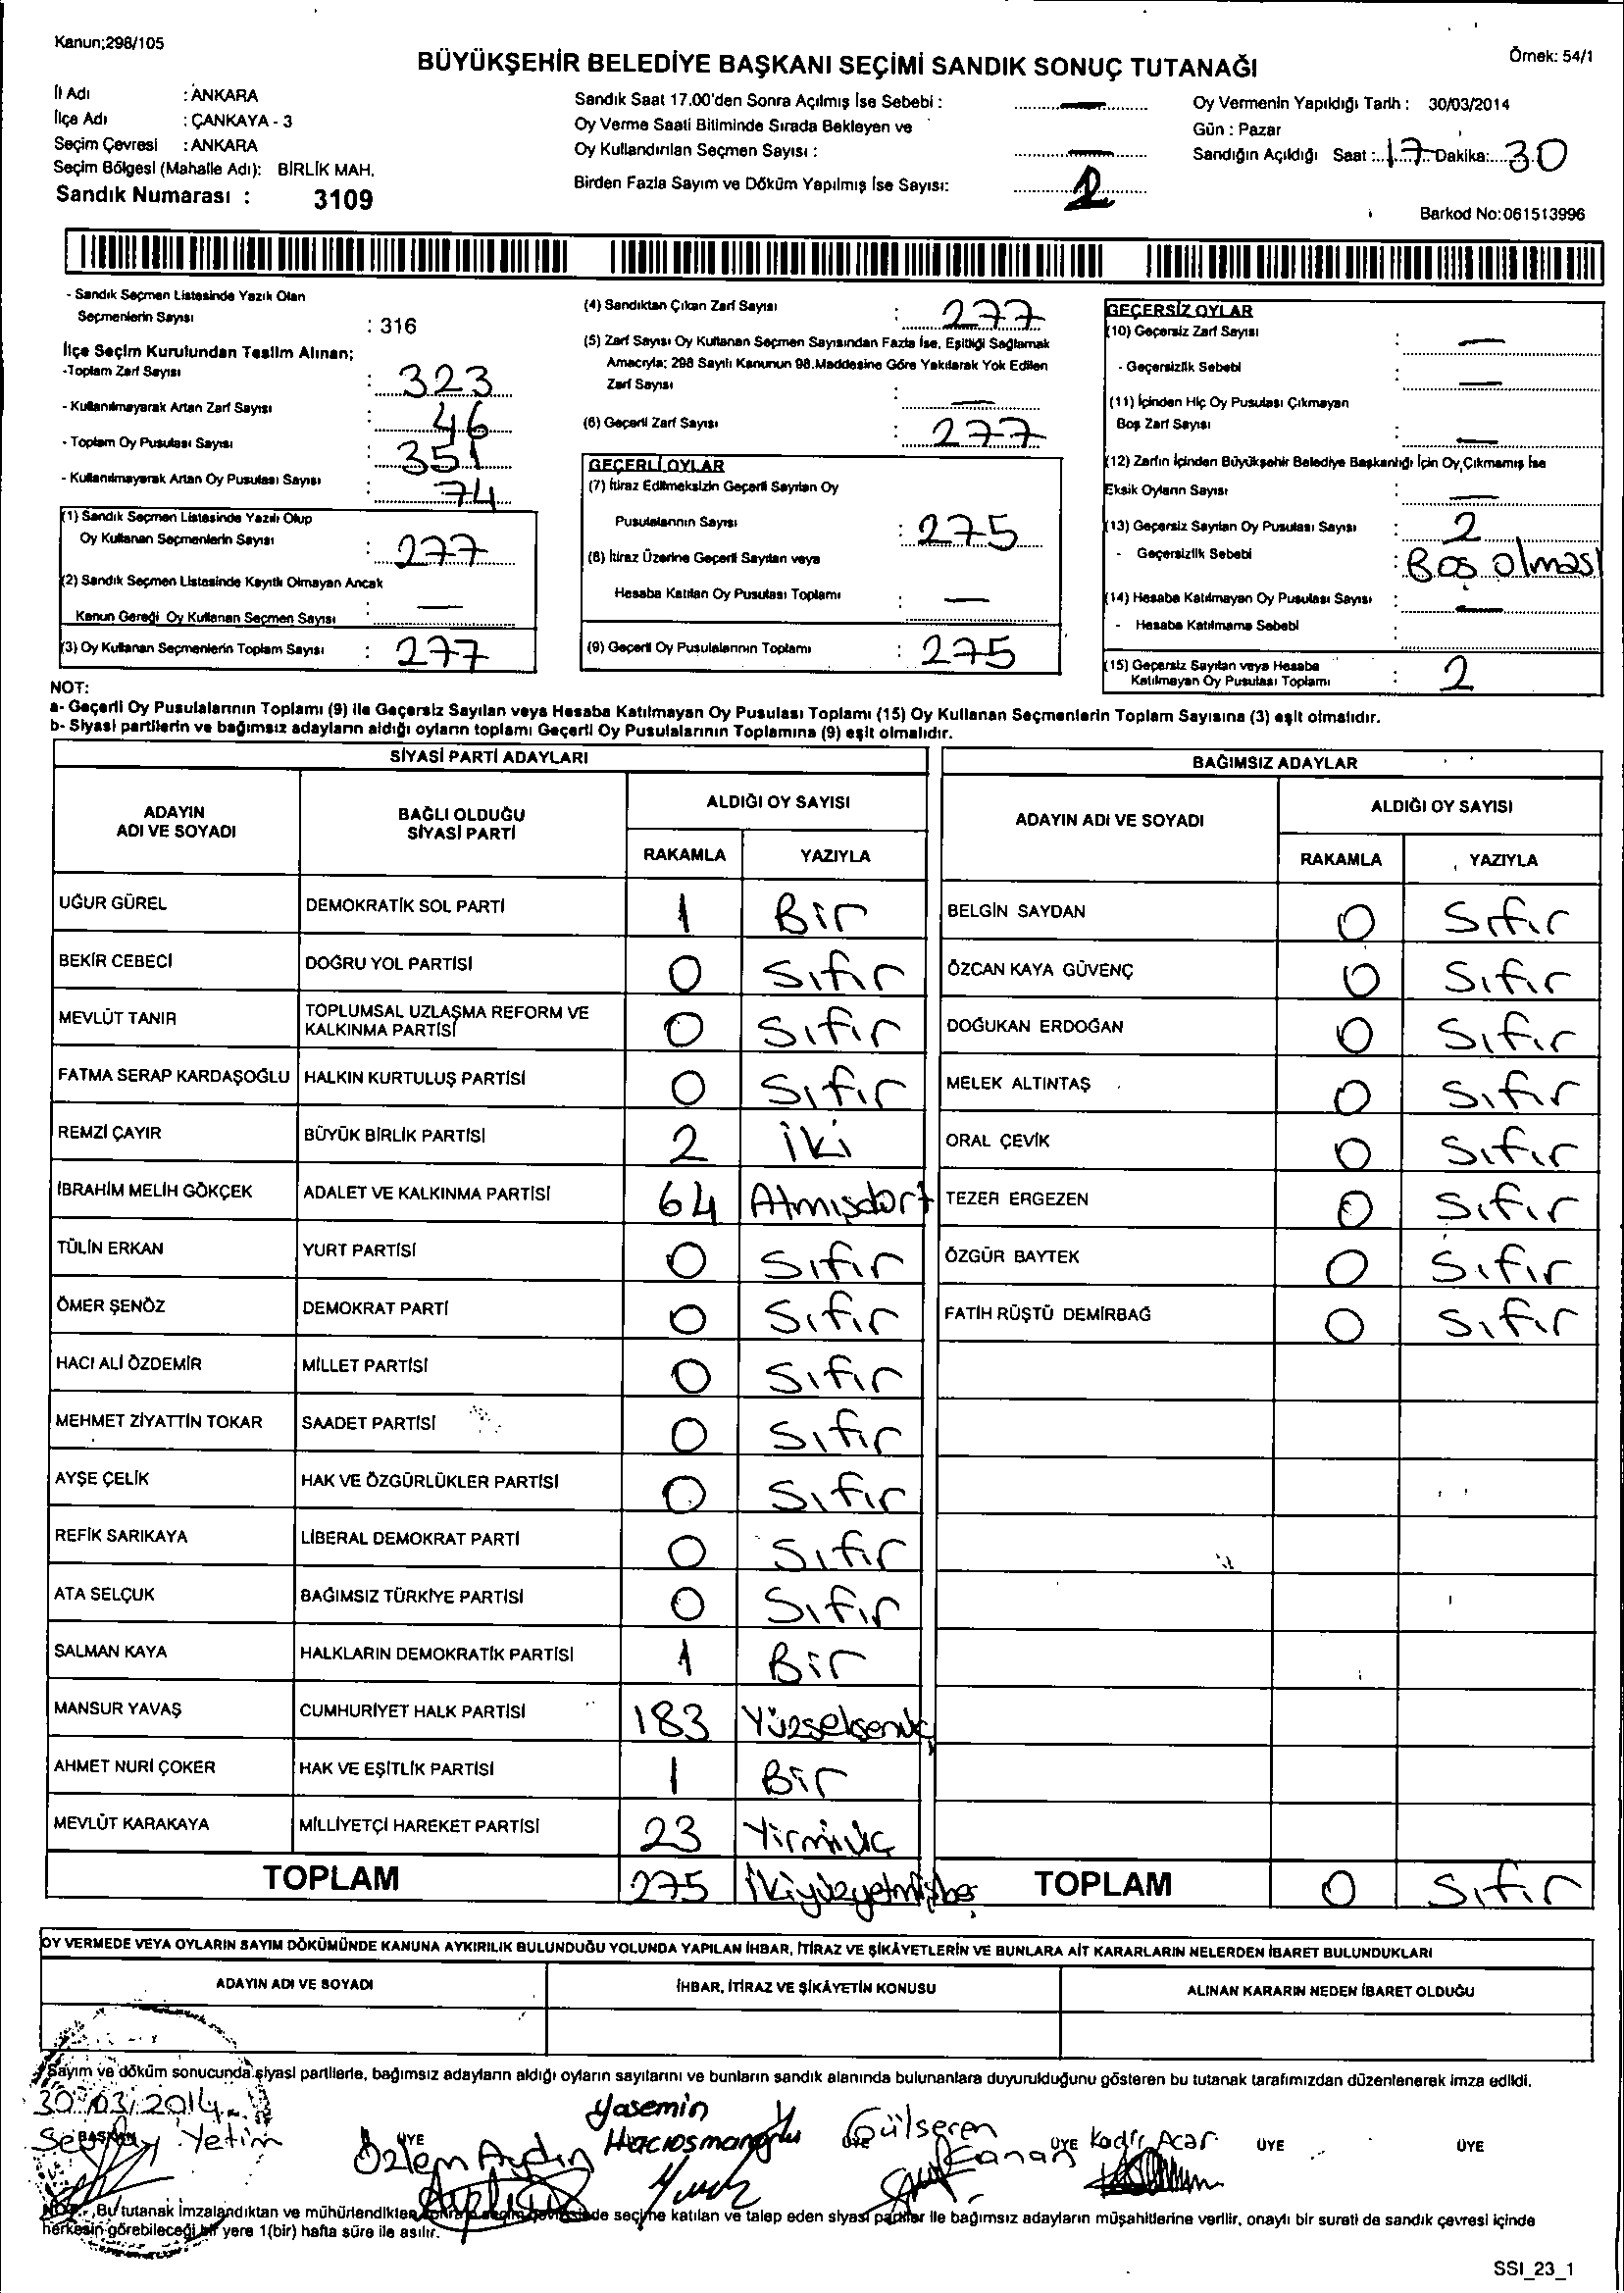 Kanun;298/105
Örnek: 54/1
BÜYÜKŞEHİR BELEDİYE BAŞKANI SEÇİMİ SANDIK SONUÇ TUTANAĞI
İl Adı : ANKARA
İlçe Adı : ÇANKAYA - 3
Seçim Çevresi : ANKARA
Seçim Bölgesi (Mahalle Adı): BİRLİK MAH.
Sandık Numarası : 3109
Sandık Saat 17.00'den Sonra Açılmış İse Sebebi : —
Oy Verme Saati Bitiminde Sırada Bekleyen ve
Oy Kullandırılan Seçmen Sayısı : —
Birden Fazla Sayım ve Döküm Yapılmış İse Sayısı:
Oy Vermenin Yapıldığı Tarih : 30/03/2014
Gün : Pazar
Sandığın Açıldığı Saat : 17 Dakika: 30
Barkod No:061513996
- Sandık Seçmen Listesinde Yazılı Olan
Seçmenlerin Sayısı : 316
İlçe Seçim Kurulundan Teslim Alınan;
-Toplam Zarf Sayısı : 323
- Kullanılmayarak Artan Zarf Sayısı : 46
- Toplam Oy Pusulası Sayısı : 351
- Kullanılmayarak Artan Oy Pusulası Sayısı : 74
(1) Sandık Seçmen Listesinde Yazılı Olup
Oy Kullanan Seçmenlerin Sayısı : 277
(2) Sandık Seçmen Listesinde Kayıtlı Olmayan Ancak
Kanun Gereği Oy Kullanan Seçmen Sayısı : —
(3) Oy Kullanan Seçmenlerin Toplam Sayısı : 277
(4) Sandıktan Çıkan Zarf Sayısı : 277
(5) Zarf Sayısı Oy Kullanan Seçmen Sayısından Fazla İse, Eşitliği Sağlamak
Amacıyla; 298 Sayılı Kanunun 98.Maddesine Göre Yakılarak Yok Edilen
Zarf Sayısı : —
(6) Geçerli Zarf Sayısı : 277
GEÇERLİ OYLAR
(7) İtiraz Edilmeksizin Geçerli Sayılan Oy
Pusulalarının Sayısı : 275
(8) İtiraz Üzerine Geçerli Sayılan veya
Hesaba Katılan Oy Pusulası Toplamı : —
(9) Geçerli Oy Pusulalarının Toplamı : 275
GEÇERSİZ OYLAR
(10) Geçersiz Zarf Sayısı : —
- Geçersizlik Sebebi : —
(11) İçinden Hiç Oy Pusulası Çıkmayan
Boş Zarf Sayısı : —
(12) Zarfın İçinden Büyükşehir Belediye Başkanlığı İçin Oy Çıkmamış İse
Eksik Oyların Sayısı : —
(13) Geçersiz Sayılan Oy Pusulası Sayısı : 2
- Geçersizlik Sebebi : Boş olması
(14) Hesaba Katılmayan Oy Pusulası Sayısı : —
- Hesaba Katılmama Sebebi :
(15) Geçersiz Sayılan veya Hesaba
Katılmayan Oy Pusulası Toplamı : 2
NOT:
a- Geçerli Oy Pusulalarının Toplamı (9) ile Geçersiz Sayılan veya Hesaba Katılmayan Oy Pusulası Toplamı (15) Oy Kullanan Seçmenlerin Toplam Sayısına (3) eşit olmalıdır.
b- Siyasi partilerin ve bağımsız adayların aldığı oyların toplamı Geçerli Oy Pusulalarının Toplamına (9) eşit olmalıdır.
SİYASİ PARTİ ADAYLARI
ADAYIN ADI VE SOYADI BAĞLI OLDUĞU SİYASİ PARTİ ALDIĞI OY SAYISI
RAKAMLA YAZIYLA
UĞUR GÜREL DEMOKRATİK SOL PARTİ 1 Bir
BEKİR CEBECİ DOĞRU YOL PARTİSİ 0 Sıfır
MEVLÜT TANIR TOPLUMSAL UZLAŞMA REFORM VE KALKINMA PARTİSİ 0 Sıfır
FATMA SERAP KARDAŞOĞLU HALKIN KURTULUŞ PARTİSİ 0 Sıfır
REMZİ ÇAYIR BÜYÜK BİRLİK PARTİSİ 2 İki
İBRAHİM MELİH GÖKÇEK ADALET VE KALKINMA PARTİSİ 64 Atmışdört
TÜLİN ERKAN YURT PARTİSİ 0 Sıfır
ÖMER ŞENÖZ DEMOKRAT PARTİ 0 Sıfır
HACI ALİ ÖZDEMİR MİLLET PARTİSİ 0 Sıfır
MEHMET ZİYATTİN TOKAR SAADET PARTİSİ 0 Sıfır
AYŞE ÇELİK HAK VE ÖZGÜRLÜKLER PARTİSİ 0 Sıfır
REFİK SARIKAYA LİBERAL DEMOKRAT PARTİ 0 Sıfır
ATA SELÇUK BAĞIMSIZ TÜRKİYE PARTİSİ 0 Sıfır
SALMAN KAYA HALKLARIN DEMOKRATİK PARTİSİ 1 Bir
MANSUR YAVAŞ CUMHURİYET HALK PARTİSİ 183 Yüzseksenüç
AHMET NURİ ÇOKER HAK VE EŞİTLİK PARTİSİ 1 Bir
MEVLÜT KARAKAYA MİLLİYETÇİ HAREKET PARTİSİ 23 Yirmiüç
TOPLAM 275 İkiyüzyetmişbeş
BAĞIMSIZ ADAYLAR
ADAYIN ADI VE SOYADI ALDIĞI OY SAYISI
RAKAMLA YAZIYLA
BELGİN SAYDAN 0 Sıfır
ÖZCAN KAYA GÜVENÇ 0 Sıfır
DOĞUKAN ERDOĞAN 0 Sıfır
MELEK ALTINTAŞ 0 Sıfır
ORAL ÇEVİK 0 Sıfır
TEZER ERGEZEN 0 Sıfır
ÖZGÜR BAYTEK 0 Sıfır
FATİH RÜŞTÜ DEMİRBAĞ 0 Sıfır
TOPLAM 0 Sıfır
OY VERMEDE VEYA OYLARIN SAYIM DÖKÜMÜNDE KANUNA AYKIRILIK BULUNDUĞU YOLUNDA YAPILAN İHBAR, İTİRAZ VE ŞİKÂYETLERİN VE BUNLARA AİT KARARLARIN NELERDEN İBARET BULUNDUKLARI
ADAYIN ADI VE SOYADI İHBAR, İTİRAZ VE ŞİKÂYETİN KONUSU ALINAN KARARIN NEDEN İBARET OLDUĞU
Sayım ve döküm sonucunda siyasi partilerle, bağımsız adayların aldığı oyların sayılarını ve bunların sandık alanında bulunanlara duyurulduğunu gösteren bu tutanak tarafımızdan düzenlenerek imza edildi.
30/03/2014
BAŞKAN ÜYE ÜYE ÜYE ÜYE ÜYE
Yetim
Özlem Aydın
Yasemin
Hacıosmanoğlu
Gülseren
Kanan
Kadir Acar
NOT: Bu tutanak imzalandıktan ve mühürlendikten sonra seçime katılan ve talep eden siyasi partiler ile bağımsız adayların müşahitlerine verilir, onaylı bir sureti de sandık çevresi içinde
herkesin görebileceği bir yere 1(bir) hafta süre ile asılır.
SSI_23_1